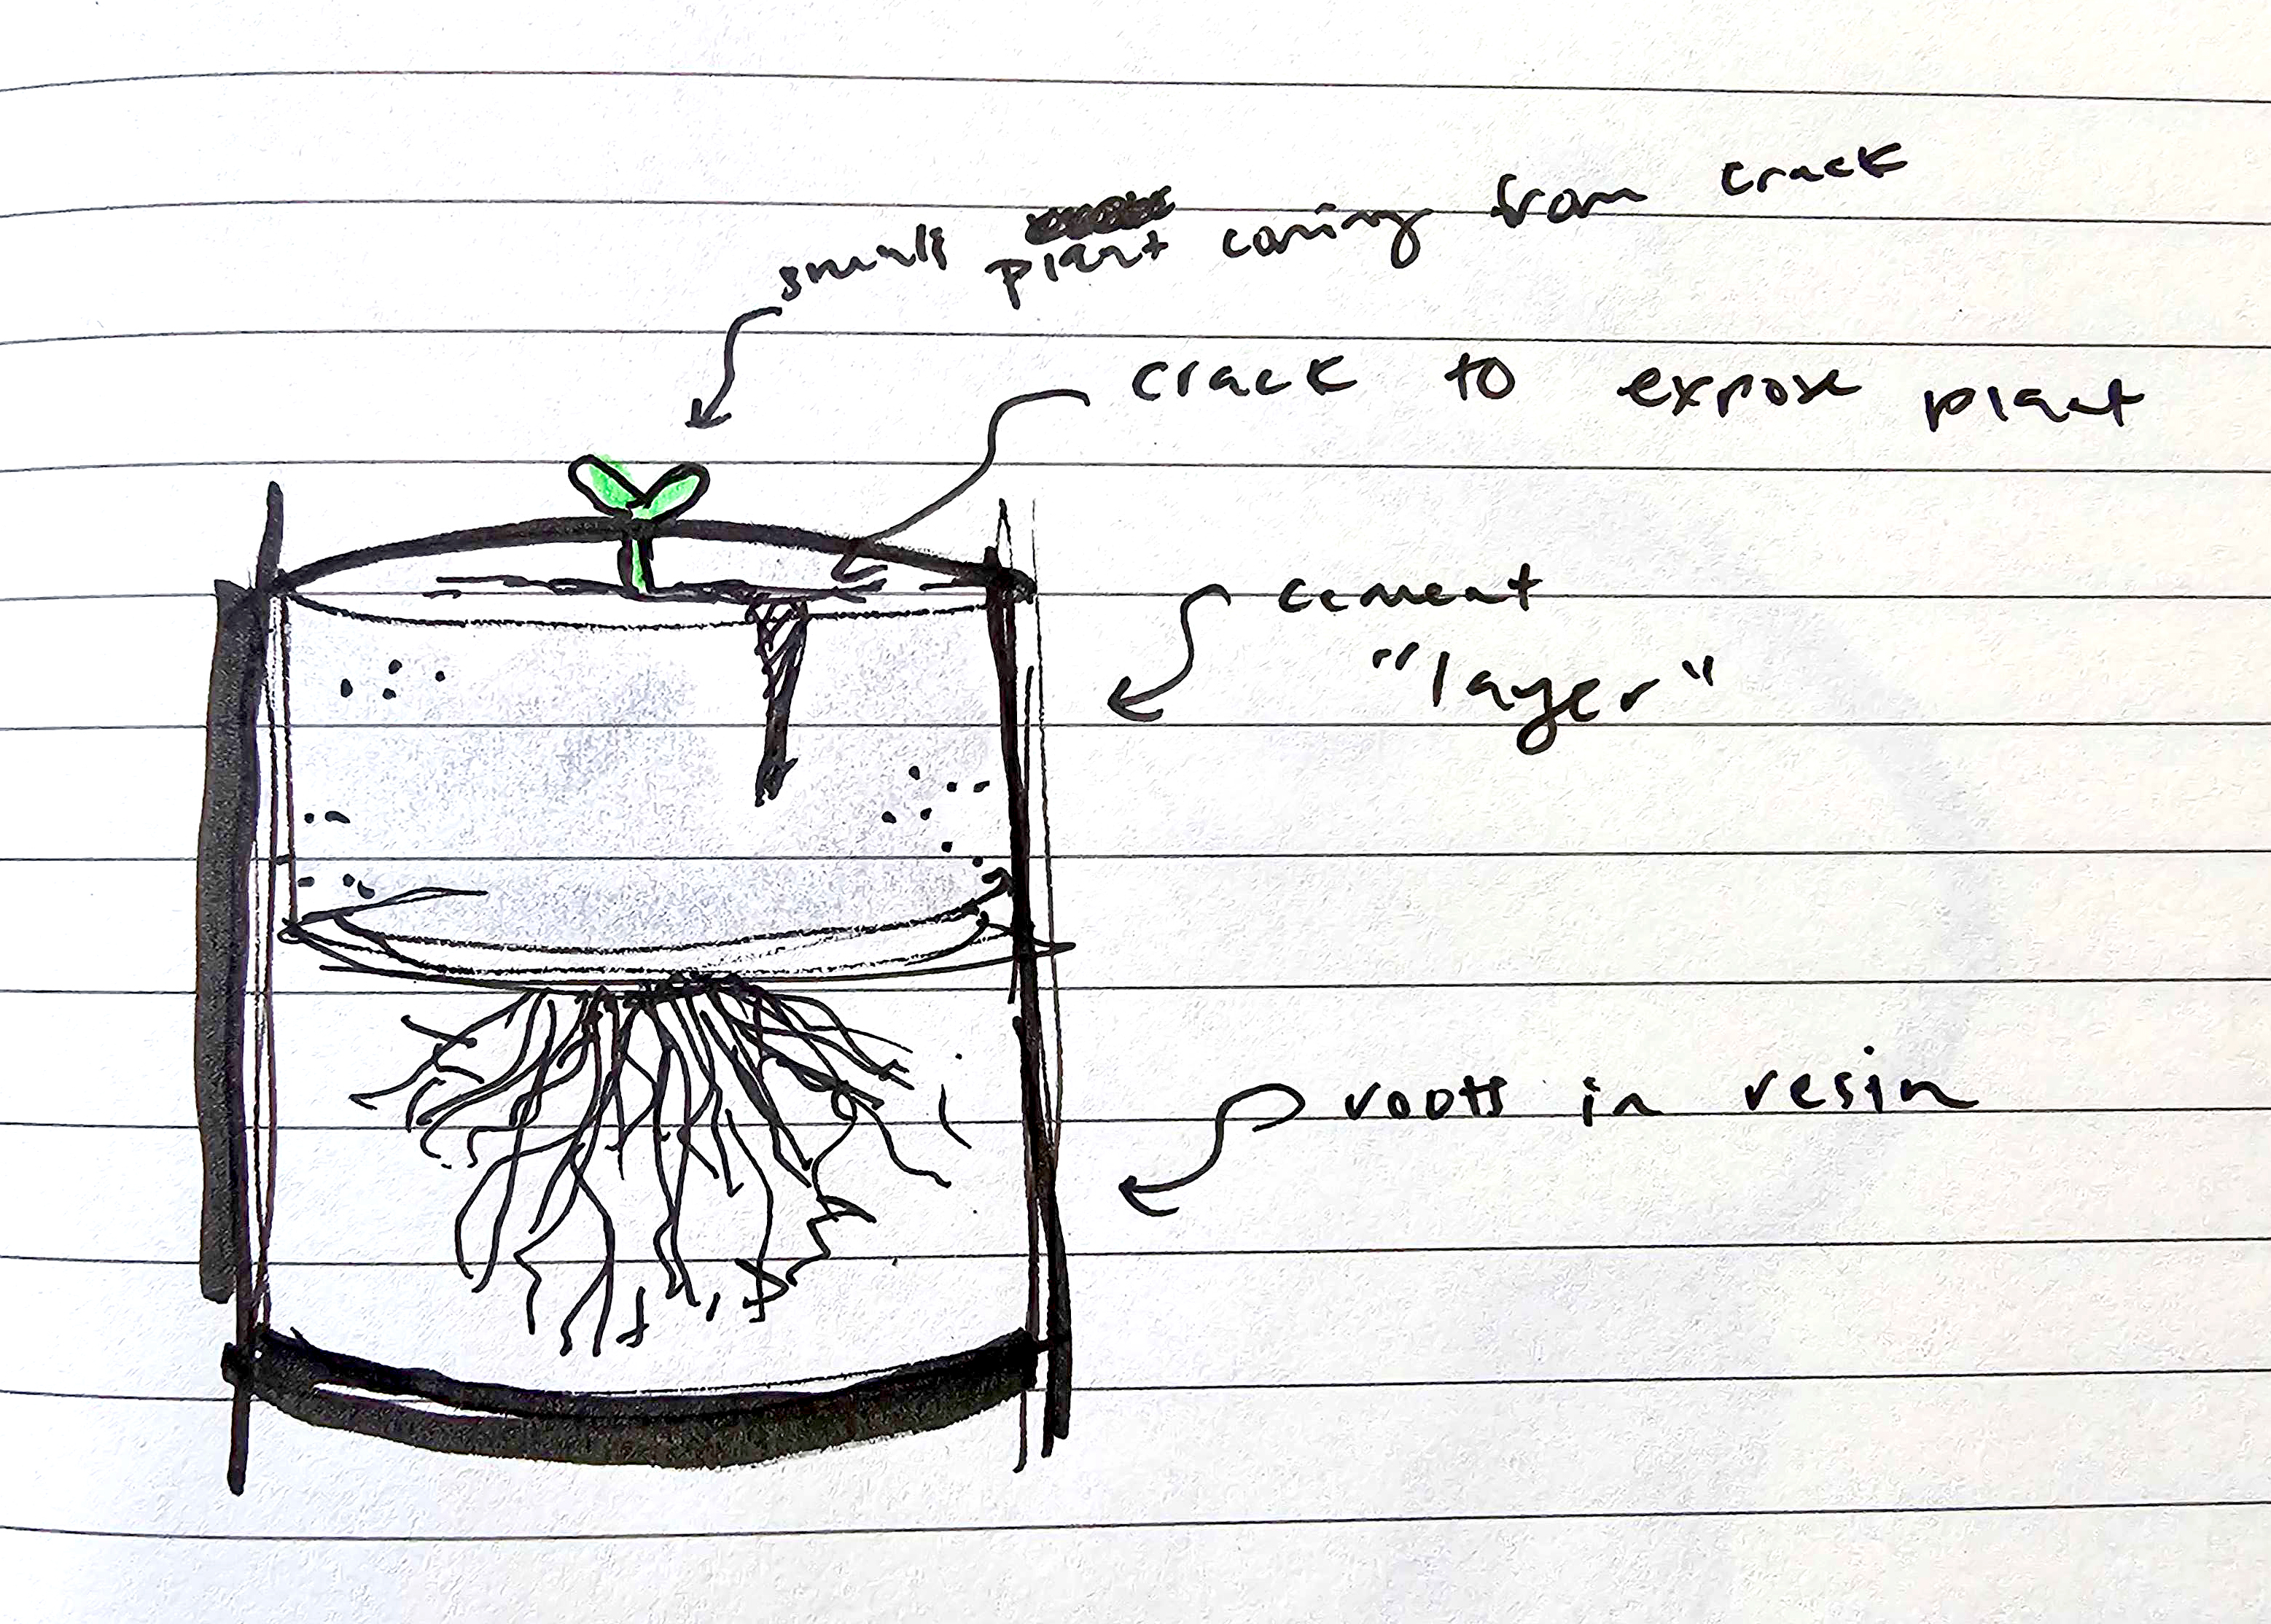 small plant coming from crack
crack to expose plant
cement
"layer"
roots in resin